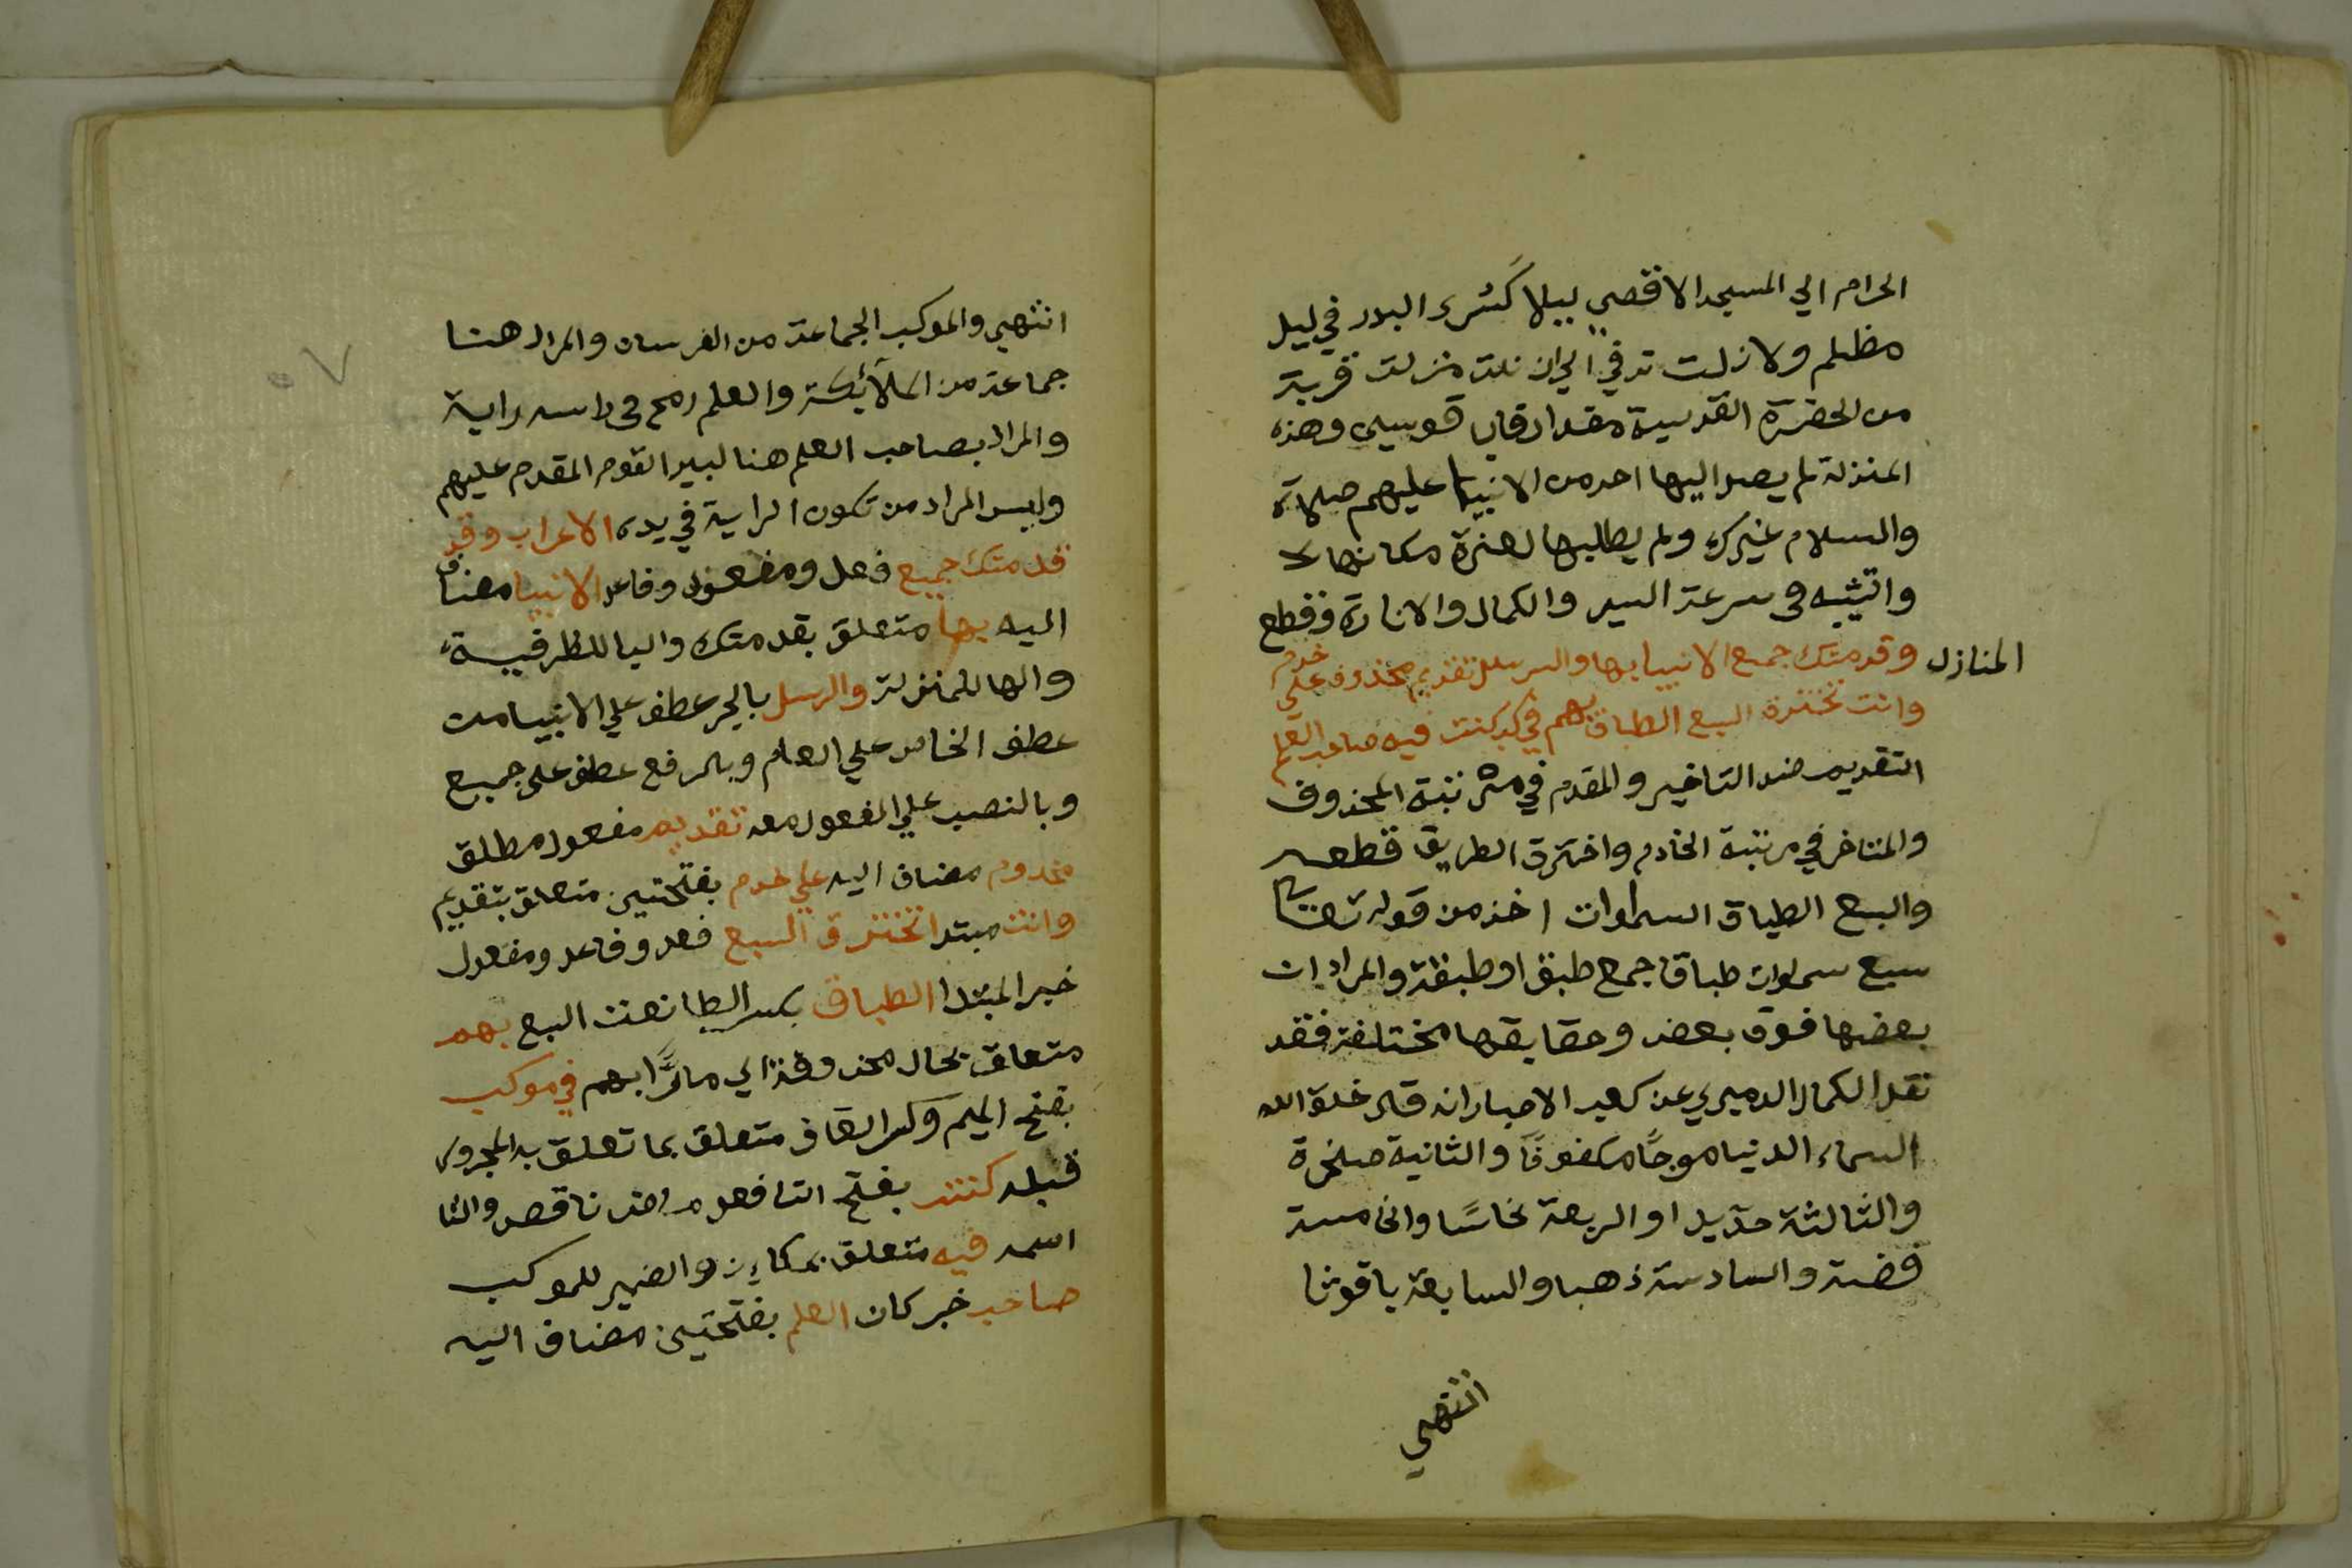 الحرام الي المسجد الاقصي ليلا كسُرى البدر في ليل
مظلم ولا زلت ترقي الي ان نلت منزلت قريبة
من الحضرة القدسية مقدار قاب قوسين وهذه
المنزلة لم يصل اليها احد من الانبيا عليهم صلاة
والسلام غيرك ولم يطلبها لعزة مكانها
والتشبيه في سرعة السير والكمال والانارة وقطع
المنازل وقدمتك جميع الانبيا بها والرسل تقديم مخدوم على خدم
وانت تخترق السبع الطباق بهم في موكب كنت فيه صاحب العلم
التقديم ضد التاخير والمقدم في مرتبة المخدوف
والمتاخر في مرتبة الخادم واخترق الطريق قطعه
والسبع الطباق السماوات اخذ من قوله تعالي
سبع سموات طباقا جمع طبق او طبقة والمراد ان
بعضها فوق بعض وحقايقها مختلفة فقد
نقل الكمال الدميري عن كعب الاحبار انه قال خلق الله
السماء الدنيا موجًا مكفوفًا والثانية صخرة
والثالثة حديدا والربعة نحاسًا والخامسة
فضة والسادسة ذهبا والسابعة ياقوتا
انتهي
انتهي والموكب الجماعة من الفرسان والمراد هنا
جماعة من الملآئكة والعلم رمح في راسه راية
والمراد بصاحب العلم هنا كبير القوم المقدم عليهم
وليس المراد من تكون الراية في يده الاعراب وقد
قدمتك جميع فعل ومفعول وفاعل الانبيا مضاف
اليه بها متعلق بقدمتك والبا للظرفية
والها للمنزلة والرسل بالجر عطف علي الانبيا من
عطف الخاص علي العام وبالرفع عطف على جميع
وبالنصب علي المفعول معه تقديم مفعول مطلق
مخدوم مضاف اليه علي خدم بفتحتين متعلق بتقديم
وانت مبتدا تخترق السبع فعل وفاعل ومفعول
خبر المبتدا الطباق بكسر الطا نعت السبع بهم
متعلق بحال محذوفة اي مارًّا بهم في موكب
بفتح الميم وكسر القاف متعلق بما تعلق به المجرور
قبله كنت بفتح التا فعل ماض ناقص والتا
اسمه فيه متعلق بكاين والضمير للموكب
صاحب خبر كان العلم بفتحتين مضاف اليه